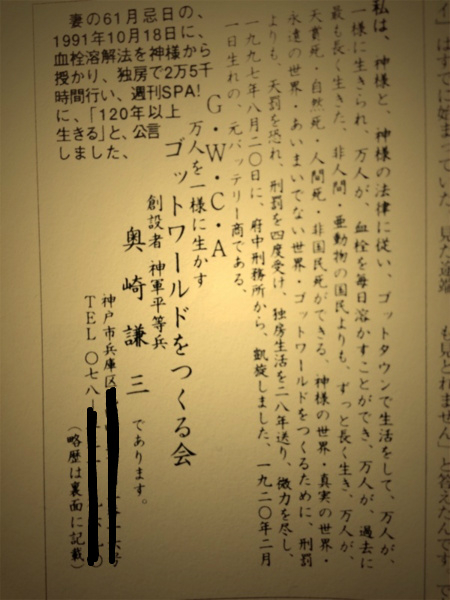 私は、神様と、神様の法律に従い、ゴットタウンで生活をして、万人が、
一様に生きられ、万人が、血栓を毎日溶かすことができ、万人が、過去に
最も長く生きた、非人間・亜動物の国民よりも、ずっと長く生き、万人が、
天賞死・自然死・人間死・非国民死ができる、神様の世界・真実の世界・
永遠の世界・あいまいでない世界・ゴットワールドをつくるために、刑罰
よりも、天罰を恐れ、刑罰を四度受け、独房生活を二八年送り、微力を尽し、
一九九七年八月二〇日に、府中刑務所から、凱旋しました、一九二〇年二月
一日生れの、元バッテリー商である、
G・W・C・A
万人を一様に生かす
ゴットワールドをつくる会
創設者 神軍平等兵
奥崎謙三 であります。
神戸市兵庫区
TEL 〇七八
(略歴は裏面に記載)
妻の61月忌日の、
1991年10月18日に、
血栓溶解法を神様から
授かり、独房で2万5千
時間行い、週刊SPA!
に、「120年以上
生きる」と、公言
しました、